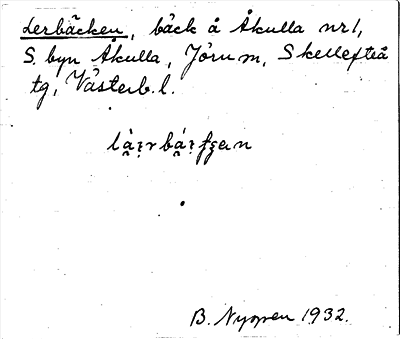 Lerbäcken, bäck å Åkulla nr 1,
S. byn Åkulla, Jörn m, Skellefteå
tg, Västerb. l.
B. Nyman 1932.